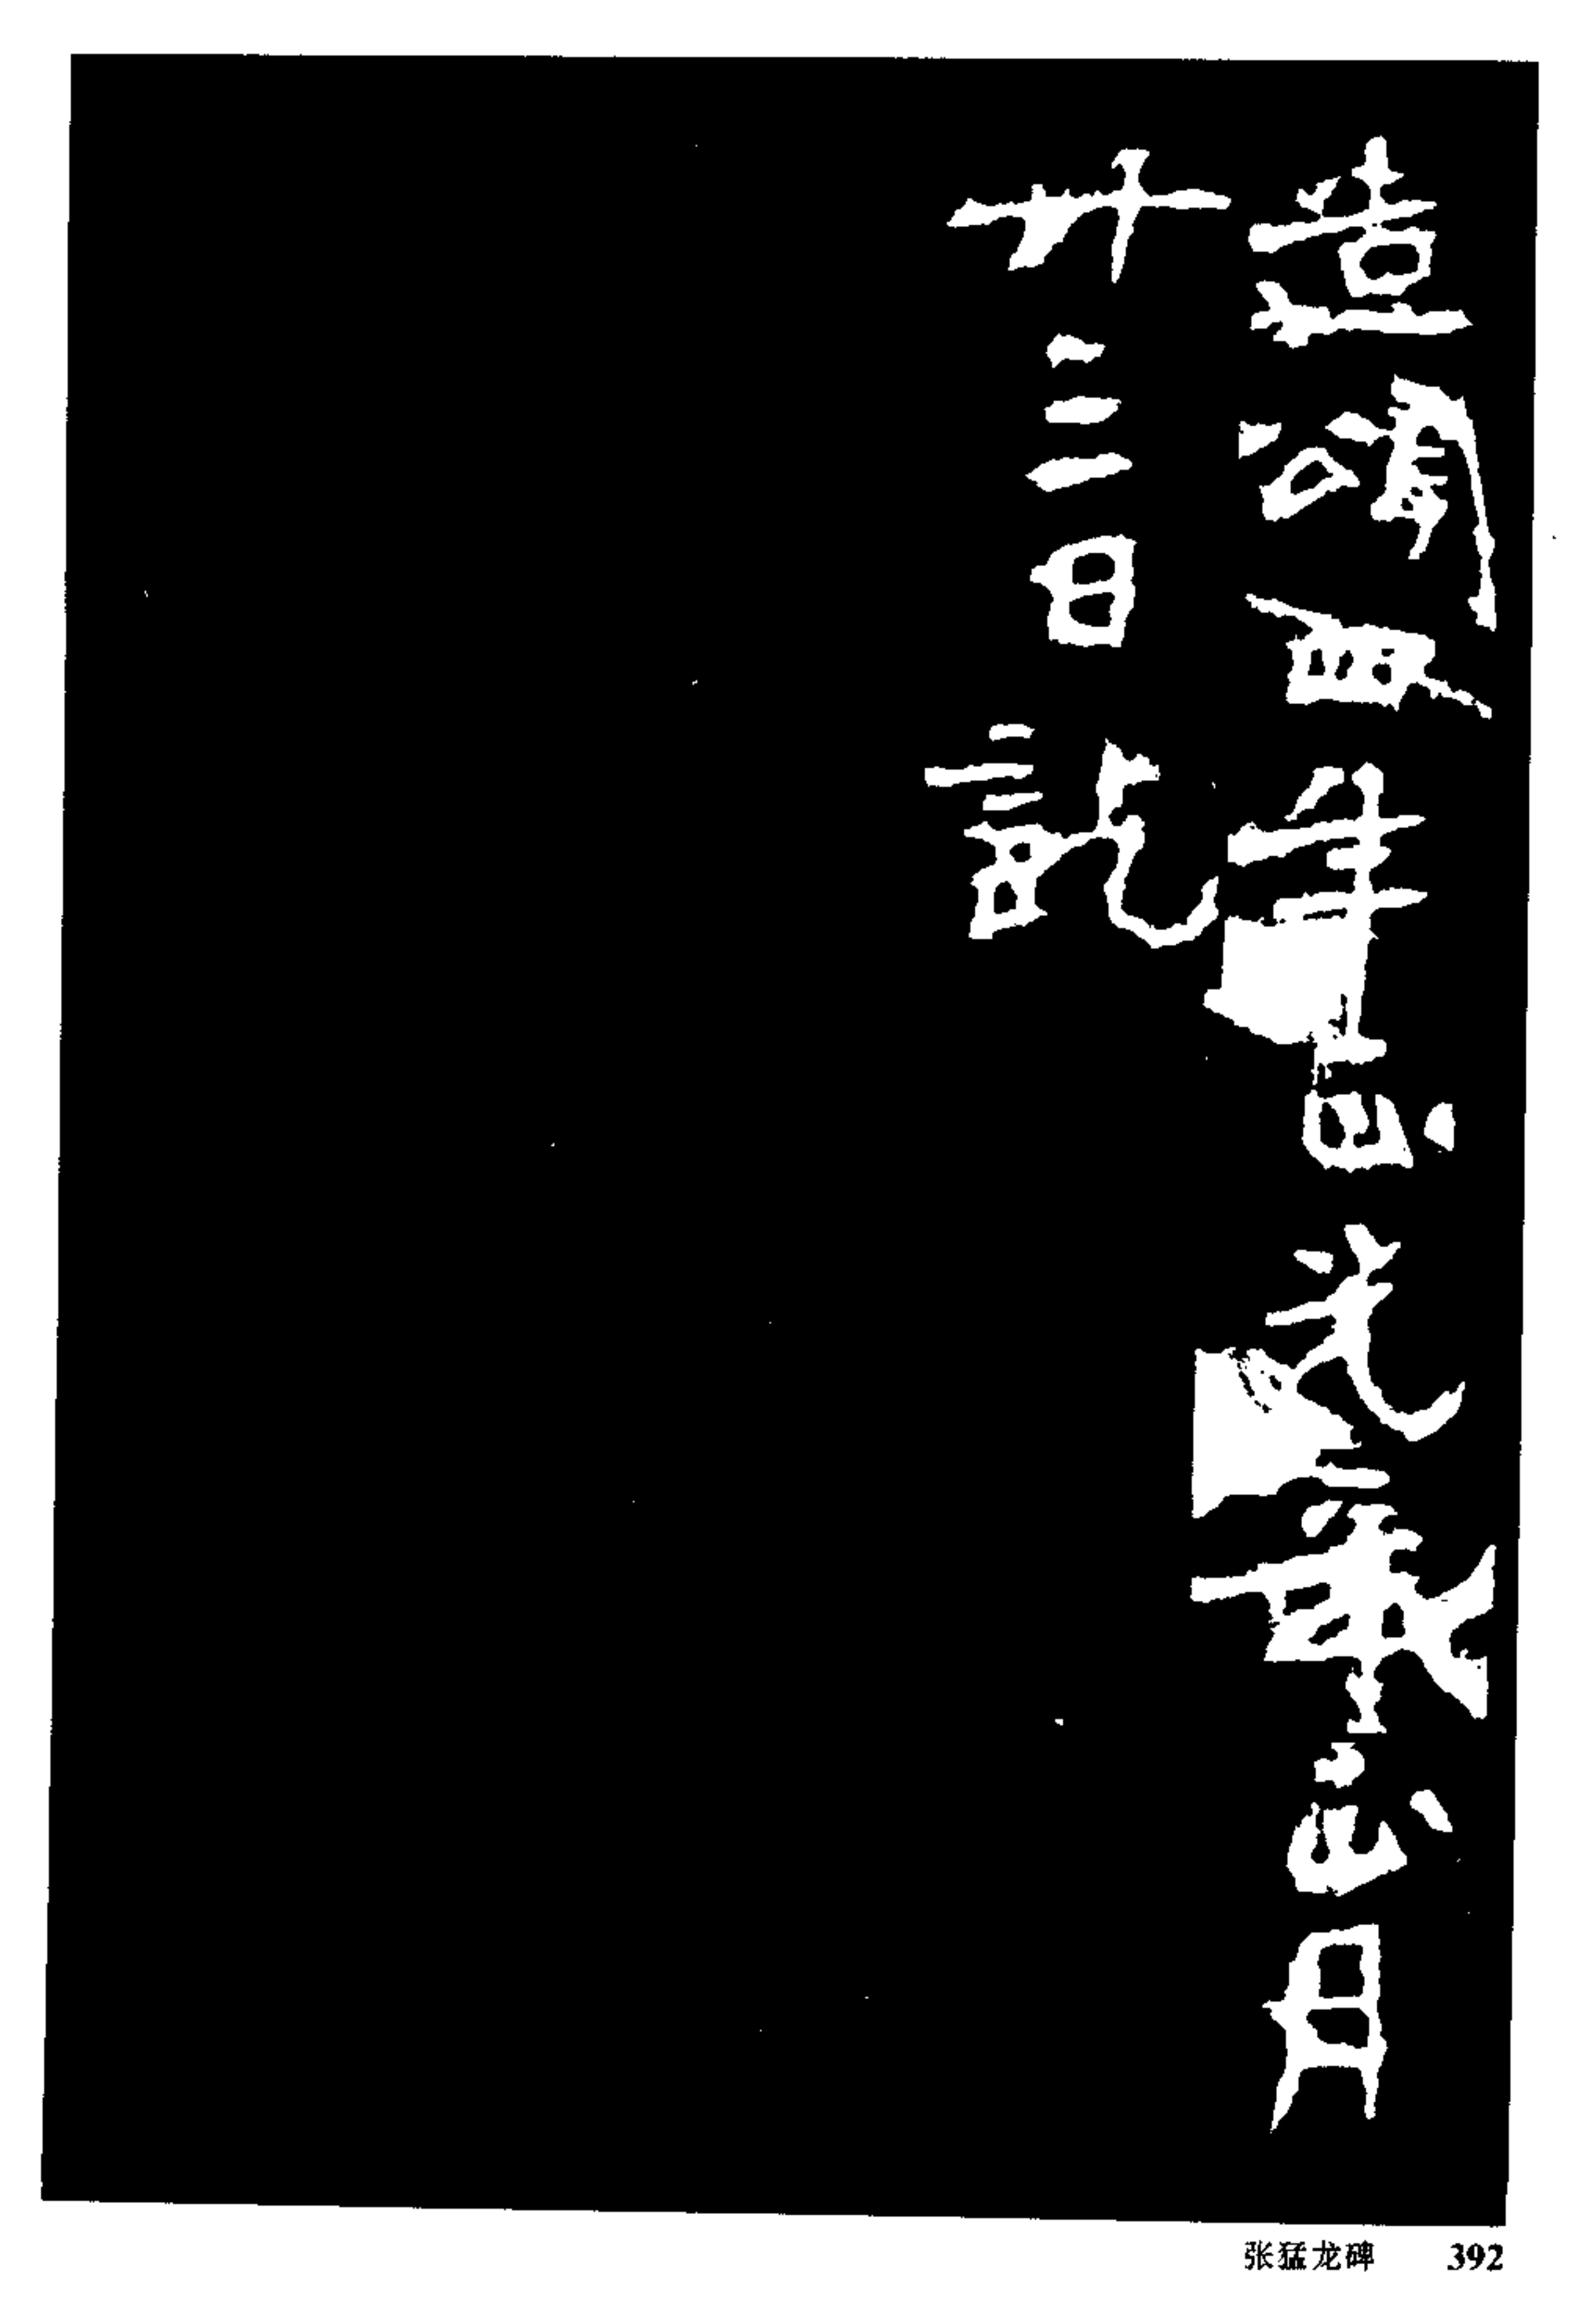 造頌四年正光三年正月
廿三日訖
张猛龙碑 392